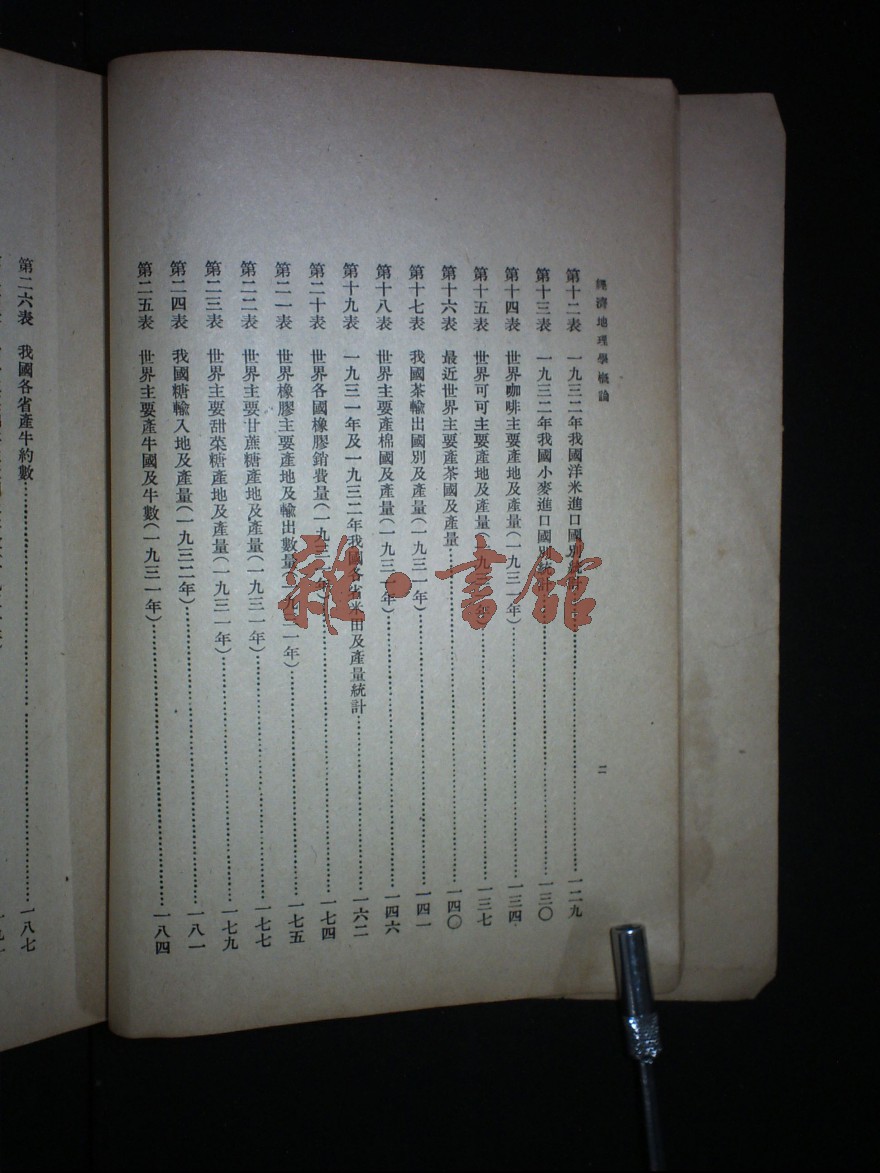 經濟地理學概論
二
第十二表 一九三二年我國洋米進口國別統計……一二九
第十三表 一九三二年我國小麥進口國別統計……一三〇
第十四表 世界咖啡主要產地及產量(一九三一年)……一三四
第十五表 世界可可主要產地及產量(一九三一年)……一三七
第十六表 最近世界主要產茶國及產量……一四〇
第十七表 我國茶輸出國別及產量(一九三一年)……一四一
第十八表 世界主要產棉國及產量(一九三一年)……一四六
第十九表 一九三一年及一九三二年我國各省米田及產量統計……一六二
第二十表 世界各國橡膠銷費量(一九三一年)……一七四
第二一表 世界橡膠主要產地及輸出數量(一九三一年)……一七五
第二二表 世界主要甘蔗糖產地及產量(一九三一年)……一七七
第二三表 世界主要甜菜糖產地及產量(一九三一年)……一七九
第二四表 我國糖輸入地及產量(一九三二年)……一八一
第二五表 世界主要產牛國及牛數(一九三一年)……一八四
第二六表 我國各省產牛約數……一八七
雜·書館